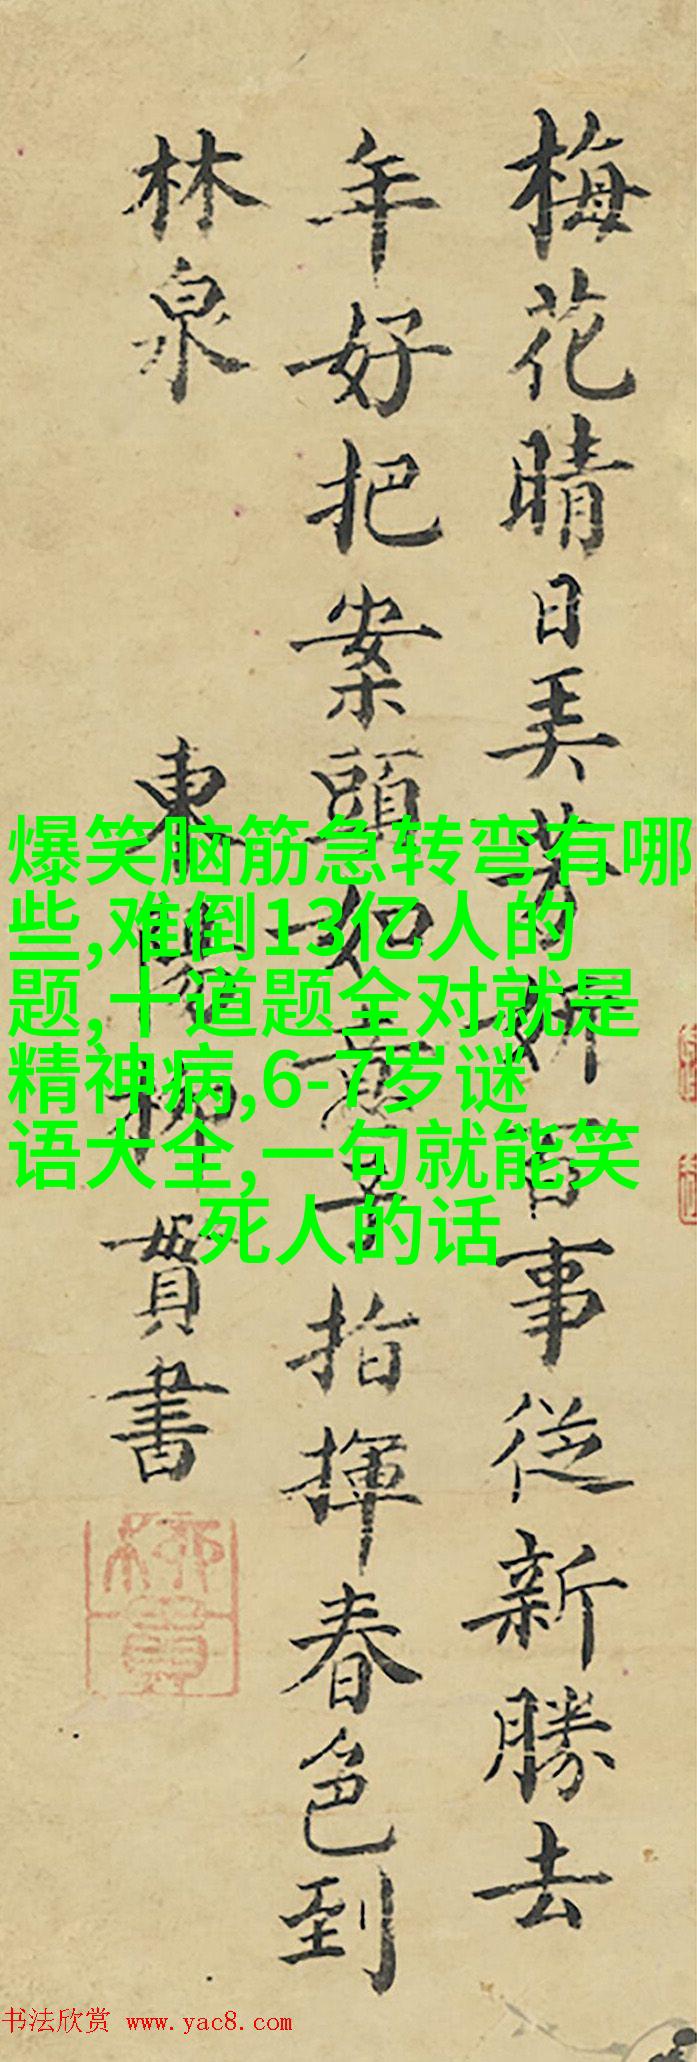 梅花晴日美芳妍百事從新勝去
年好把案頭如意子指揮春色到
林泉
東陽柳貫書
柳貫
爆笑脑筋急转弯有哪
些,难倒13亿人的
题,十道题全对就是
精神病,6-7岁谜
语大全,一句就能笑
死人的话
书法欣赏 www.yac8.com